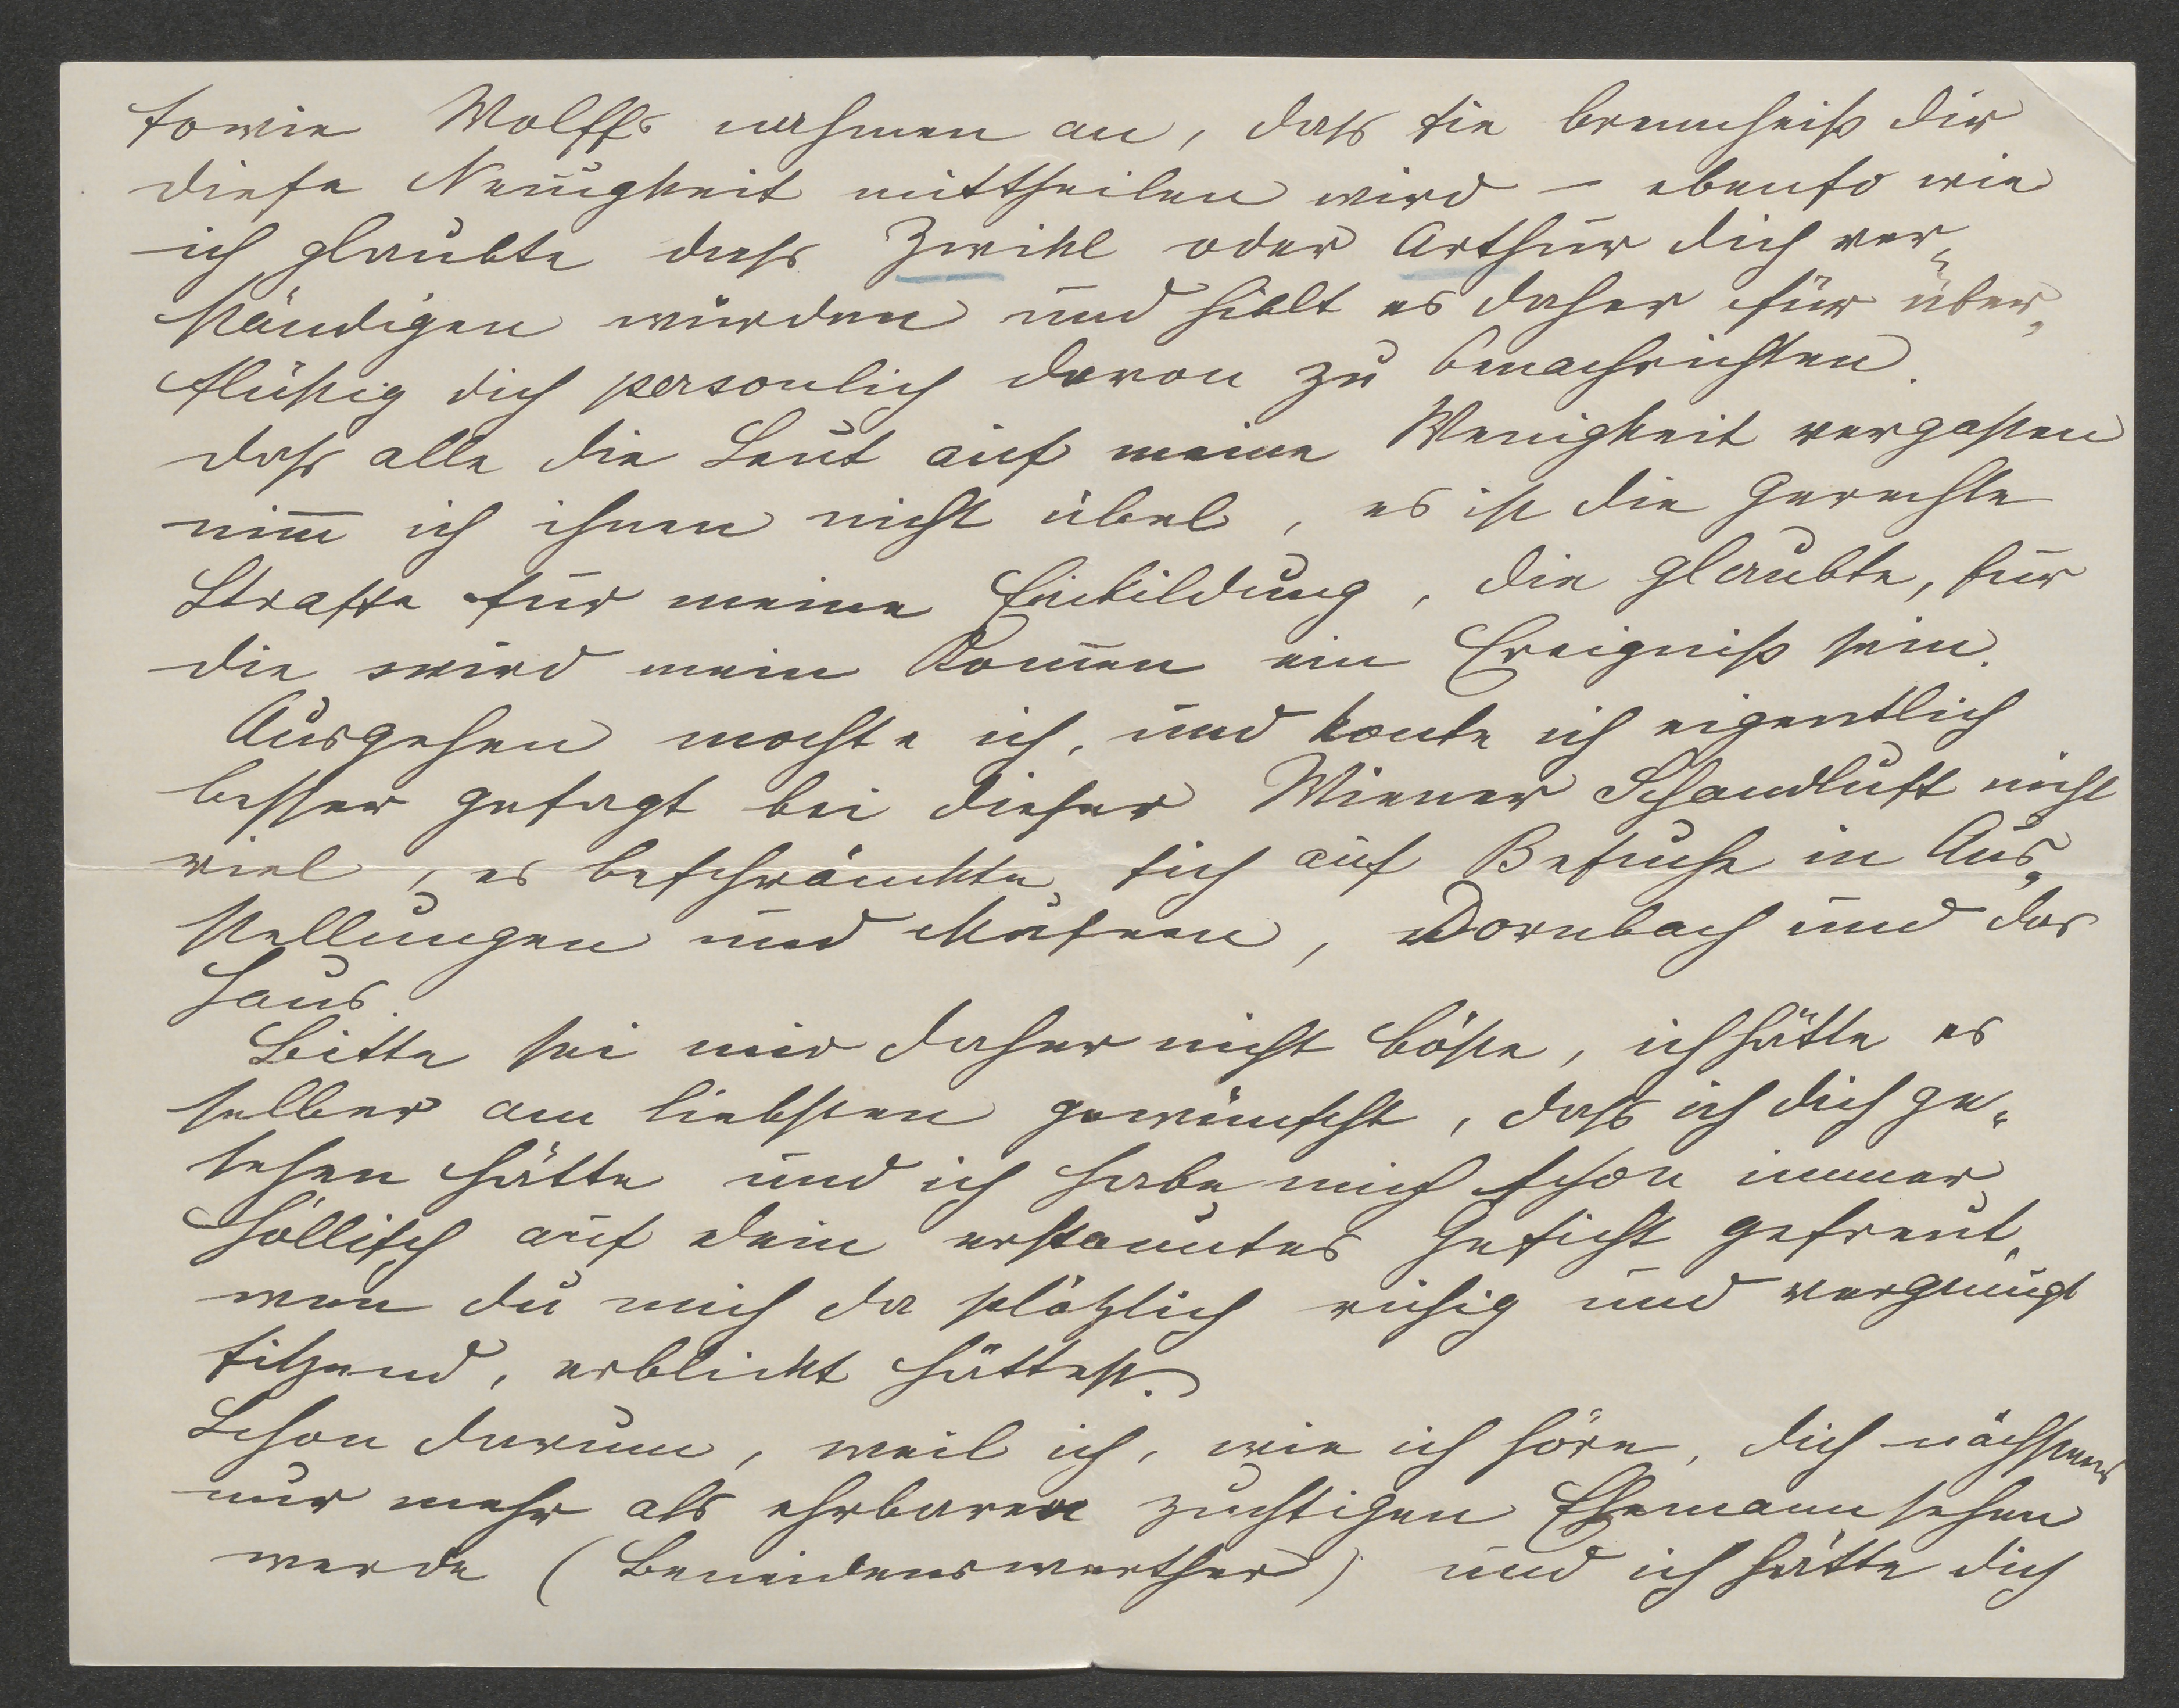 sowie Wolffs nahmen an, dass sie brennheiß dir
diese Neuigkeit mittheilen wird – ebenso wie
ich glaubte dass Zwikl oder Arthur dich ver„
ständigen würden und hielt es daher für über„
flüßig dich personlich davon zu benachrichten.
dass alle die Leut auf meine Wenigkeit vergaßen
nim̅ ich ihnen nicht übel, es ist die gerechte
Straffe für meine Einbildung, die glaubte, für
die wird mein Kom̅en ein Ereigniß sein.
Ausgehen mochte ich, und konte ich eigentlich
besser gesagt bei dieser Wiener Schandluft nicht
viel, es beschränkte sich auf Besuche in Aus„
stellungen und Museen, Dornbach und das
Haus.
Bitte sei mir daher nicht böße, ich hätte es
selber am liebsten gewünscht, dass ich dich ge„
sehen hätte und ich habe mich schon immer
höllisch auf dein erstauntes Gesicht gefreut,
wen du mich da plötzlich ruhig und vergnügt
sitzend, erblickt hättest.
Schon darum, weil ich, wie ich höre, dich nächstens
nur mehr als ehrbaren züchtigen Ehemann sehen
werde (Beneidenswerther) und ich hätte dich